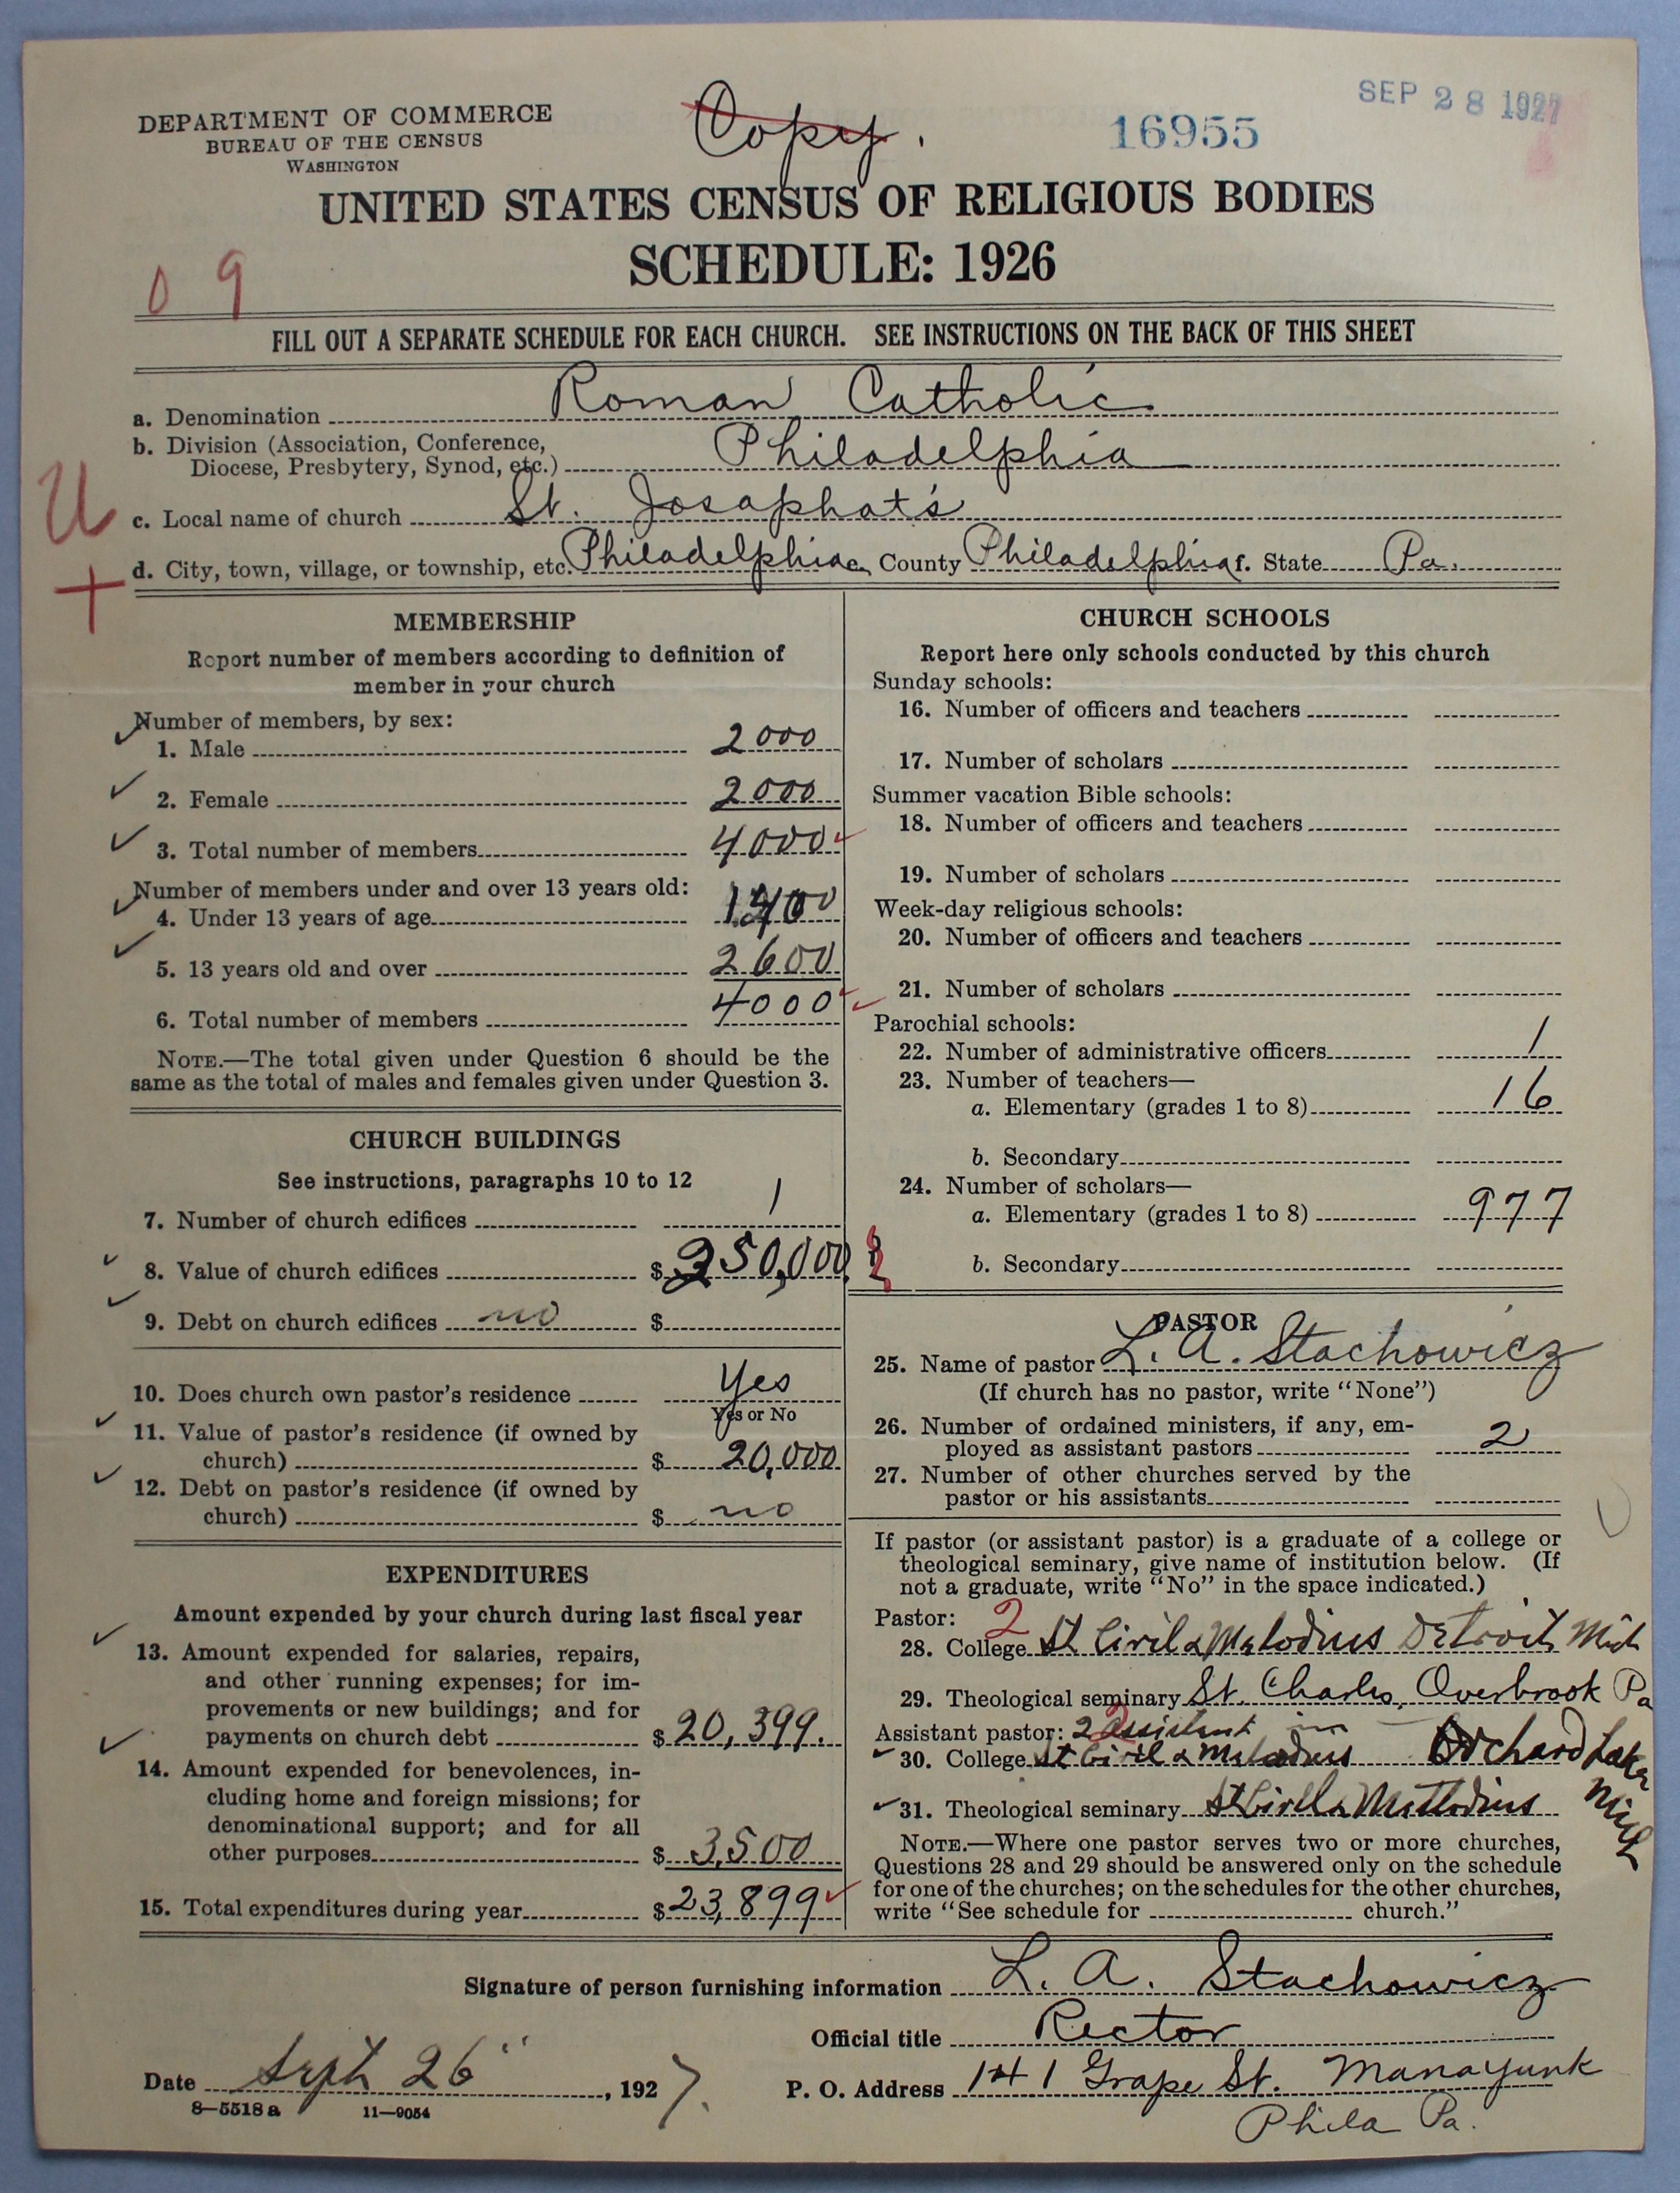 DEPARTMENT OF COMMERCE
BUREAU OF THE CENSUS
WASHINGTON
Copy.
16955
SEP 28 1927
UNITED STATES CENSUS OF RELIGIOUS BODIES
SCHEDULE: 1926
0 9
FILL OUT A SEPARATE SCHEDULE FOR EACH CHURCH. SEE INSTRUCTIONS ON THE BACK OF THIS SHEET
a. Denomination Roman Catholic
b. Division (Association, Conference,
Diocese, Presbytery, Synod, etc.) Philadelphia
c. Local name of church St. Josaphat's
d. City, town, village, or township, etc. Philadelphia e. County Philadelphia f. State Pa.
MEMBERSHIP
Report number of members according to definition of
member in your church
Number of members, by sex:
1. Male 2000
2. Female 2000
3. Total number of members 4000
Number of members under and over 13 years old:
4. Under 13 years of age 1400
5. 13 years old and over 2600
6. Total number of members 4000
NOTE.—The total given under Question 6 should be the
same as the total of males and females given under Question 3.
CHURCH BUILDINGS
See instructions, paragraphs 10 to 12
7. Number of church edifices 1
8. Value of church edifices $ 250,000
9. Debt on church edifices no $
10. Does church own pastor's residence Yes
Yes or No
11. Value of pastor's residence (if owned by
church) $ 20,000
12. Debt on pastor's residence (if owned by
church) $ no
EXPENDITURES
Amount expended by your church during last fiscal year
13. Amount expended for salaries, repairs,
and other running expenses; for im-
provements or new buildings; and for
payments on church debt $ 20,399.
14. Amount expended for benevolences, in-
cluding home and foreign missions; for
denominational support; and for all
other purposes $ 3,500
15. Total expenditures during year $ 23,899
CHURCH SCHOOLS
Report here only schools conducted by this church
Sunday schools:
16. Number of officers and teachers
17. Number of scholars
Summer vacation Bible schools:
18. Number of officers and teachers
19. Number of scholars
Week-day religious schools:
20. Number of officers and teachers
21. Number of scholars
Parochial schools:
22. Number of administrative officers 1
23. Number of teachers—
a. Elementary (grades 1 to 8) 16
b. Secondary
24. Number of scholars—
a. Elementary (grades 1 to 8) 977
b. Secondary
PASTOR
25. Name of pastor L. A. Stachowicz
(If church has no pastor, write "None")
26. Number of ordained ministers, if any, em-
ployed as assistant pastors 2
27. Number of other churches served by the
pastor or his assistants
If pastor (or assistant pastor) is a graduate of a college or
theological seminary, give name of institution below. (If
not a graduate, write "No" in the space indicated.)
Pastor: 2
28. College St Ciril & Metodius Detroit Mich
29. Theological seminary St. Charles, Overbrook Pa
Assistant pastor: 2 assistant in
30. College St Ciril & Metodius Orchard Lake
Mich
31. Theological seminary St Cirill & Methodius
NOTE.—Where one pastor serves two or more churches,
Questions 28 and 29 should be answered only on the schedule
for one of the churches; on the schedules for the other churches,
write "See schedule for church."
Signature of person furnishing information L. A. Stachowicz
Official title Rector
Date Sept 26", 1927.
P. O. Address 141 Grape St. Manayunk
Phila Pa.
8—5518 a 11—9054